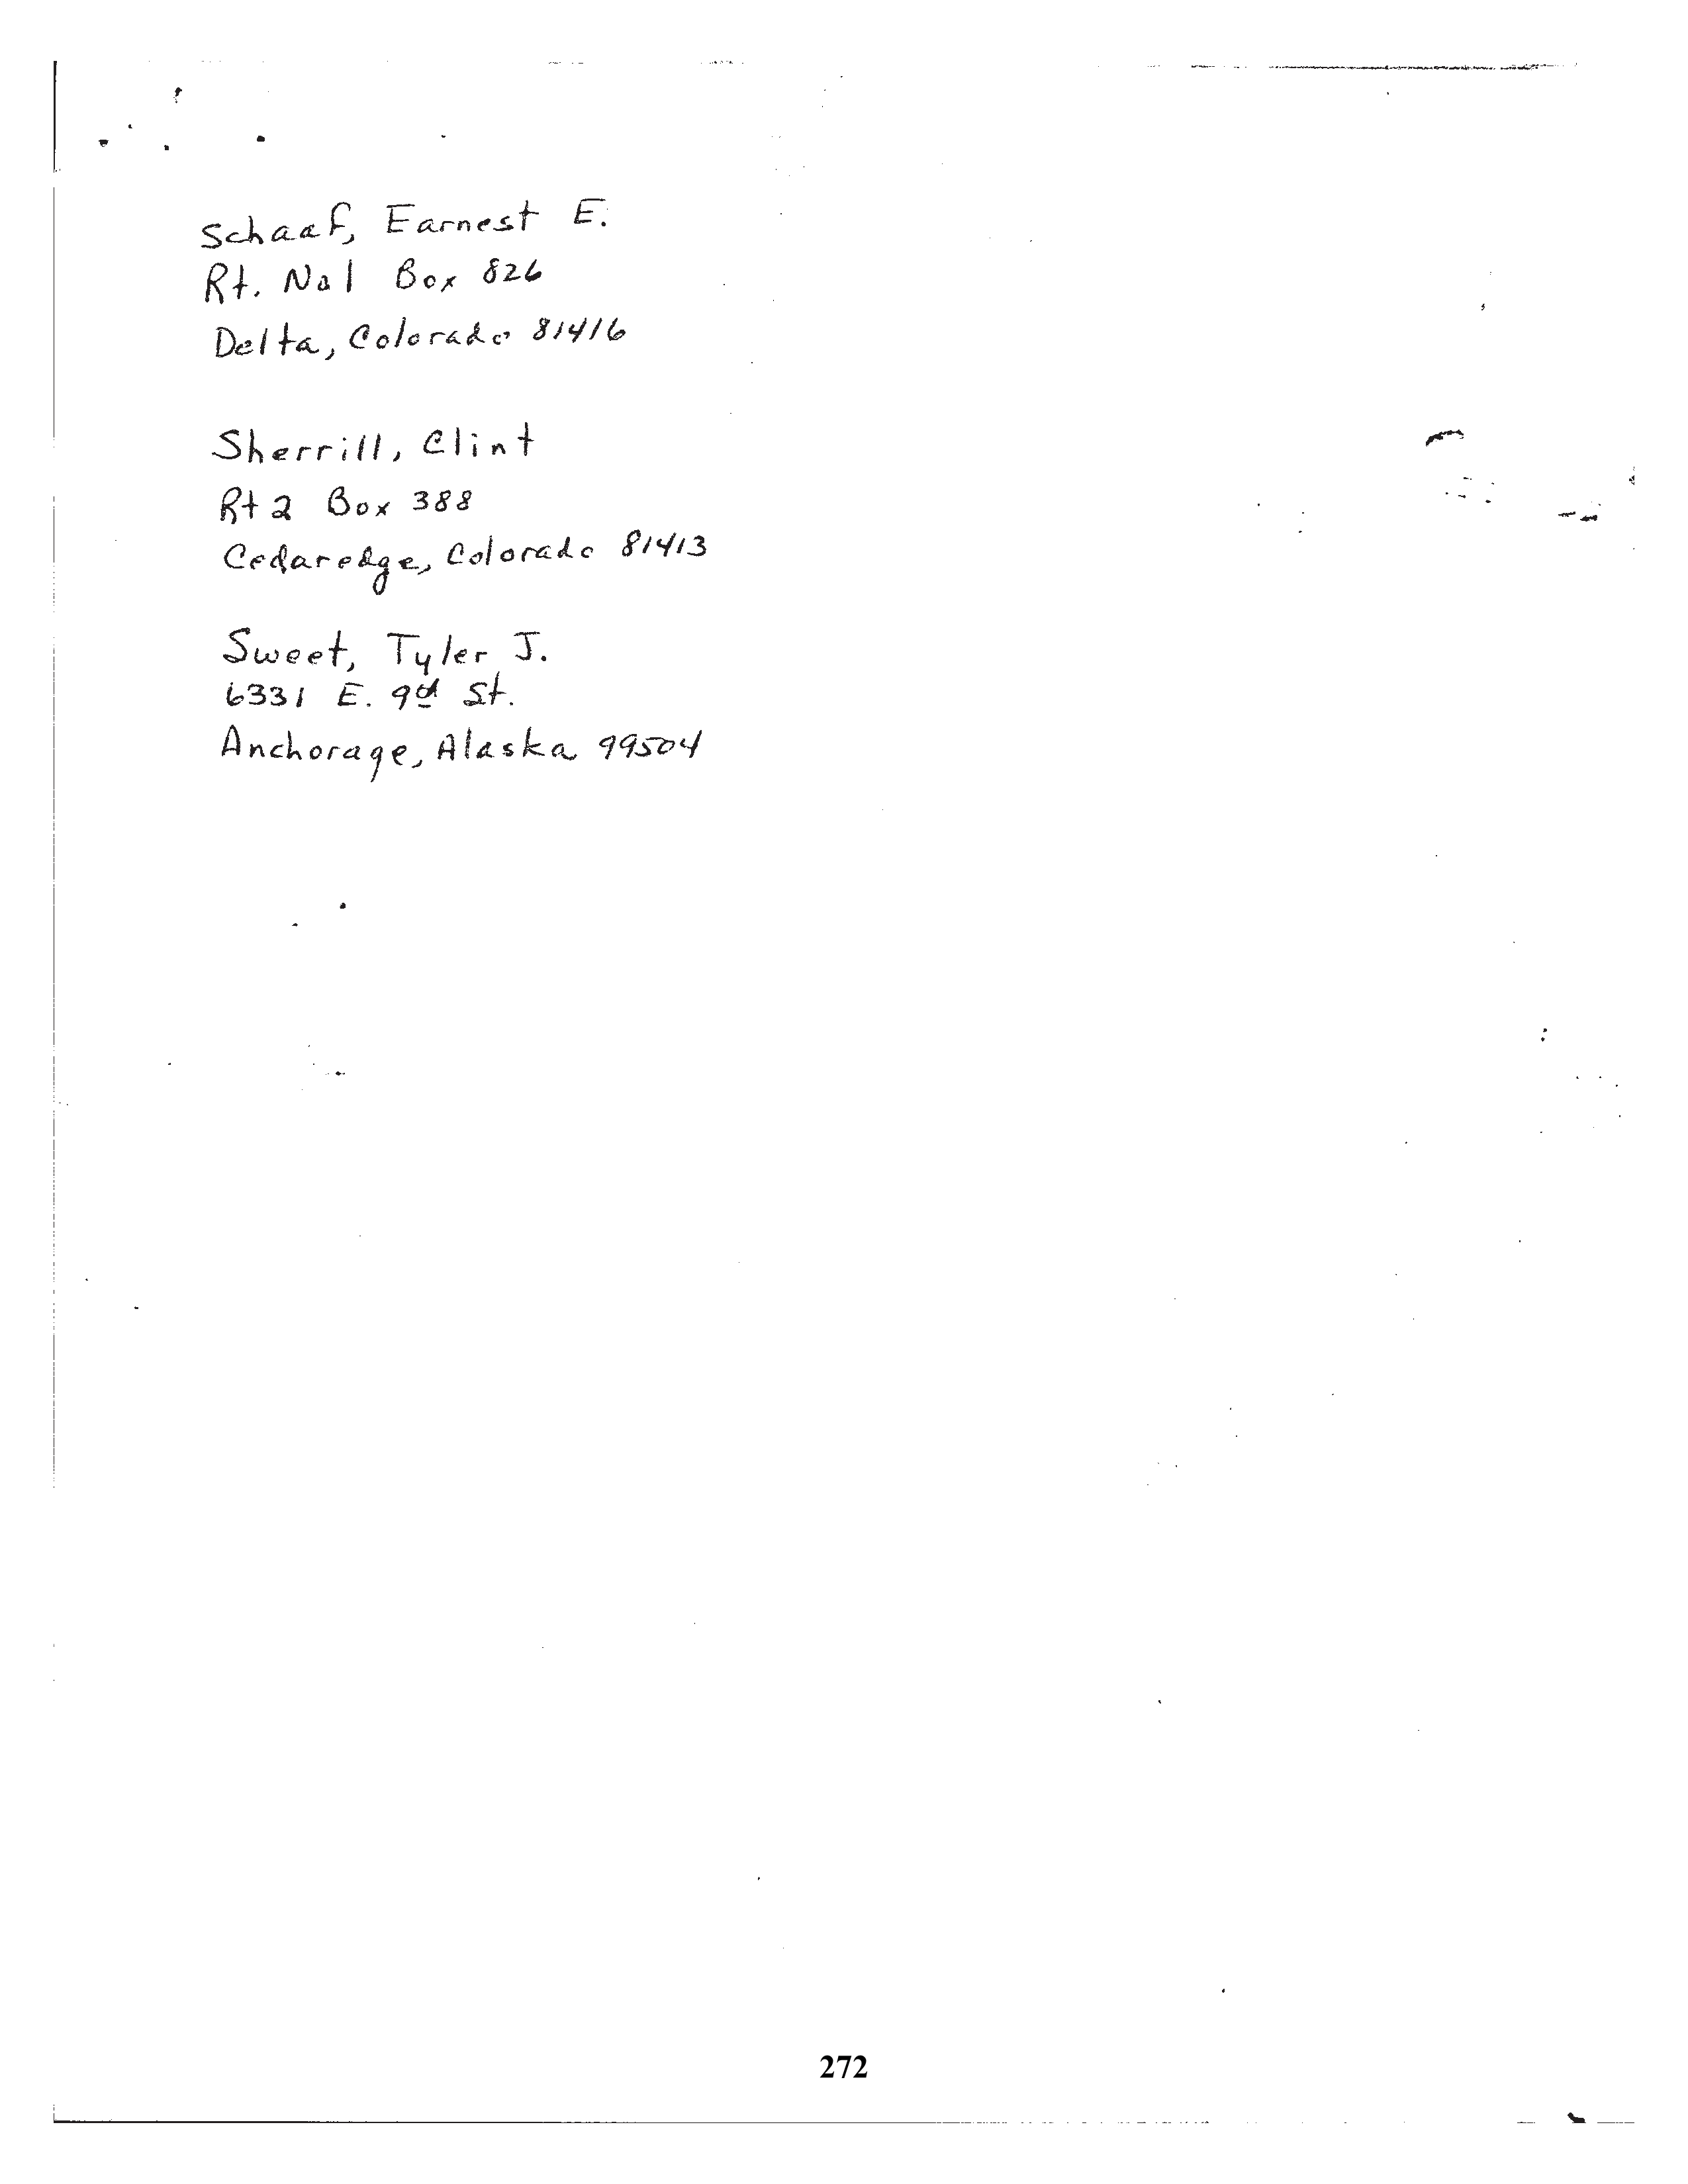 Schaaf, Earnest E.
Rt. No 1 Box 826
Delta, Colorado 81416
Sherrill, Clint
Rt 2 Box 388
Cedaredge, Colorado 81413
Sweet, Tyler J.
6331 E. 9th St.
Anchorage, Alaska 99504
272